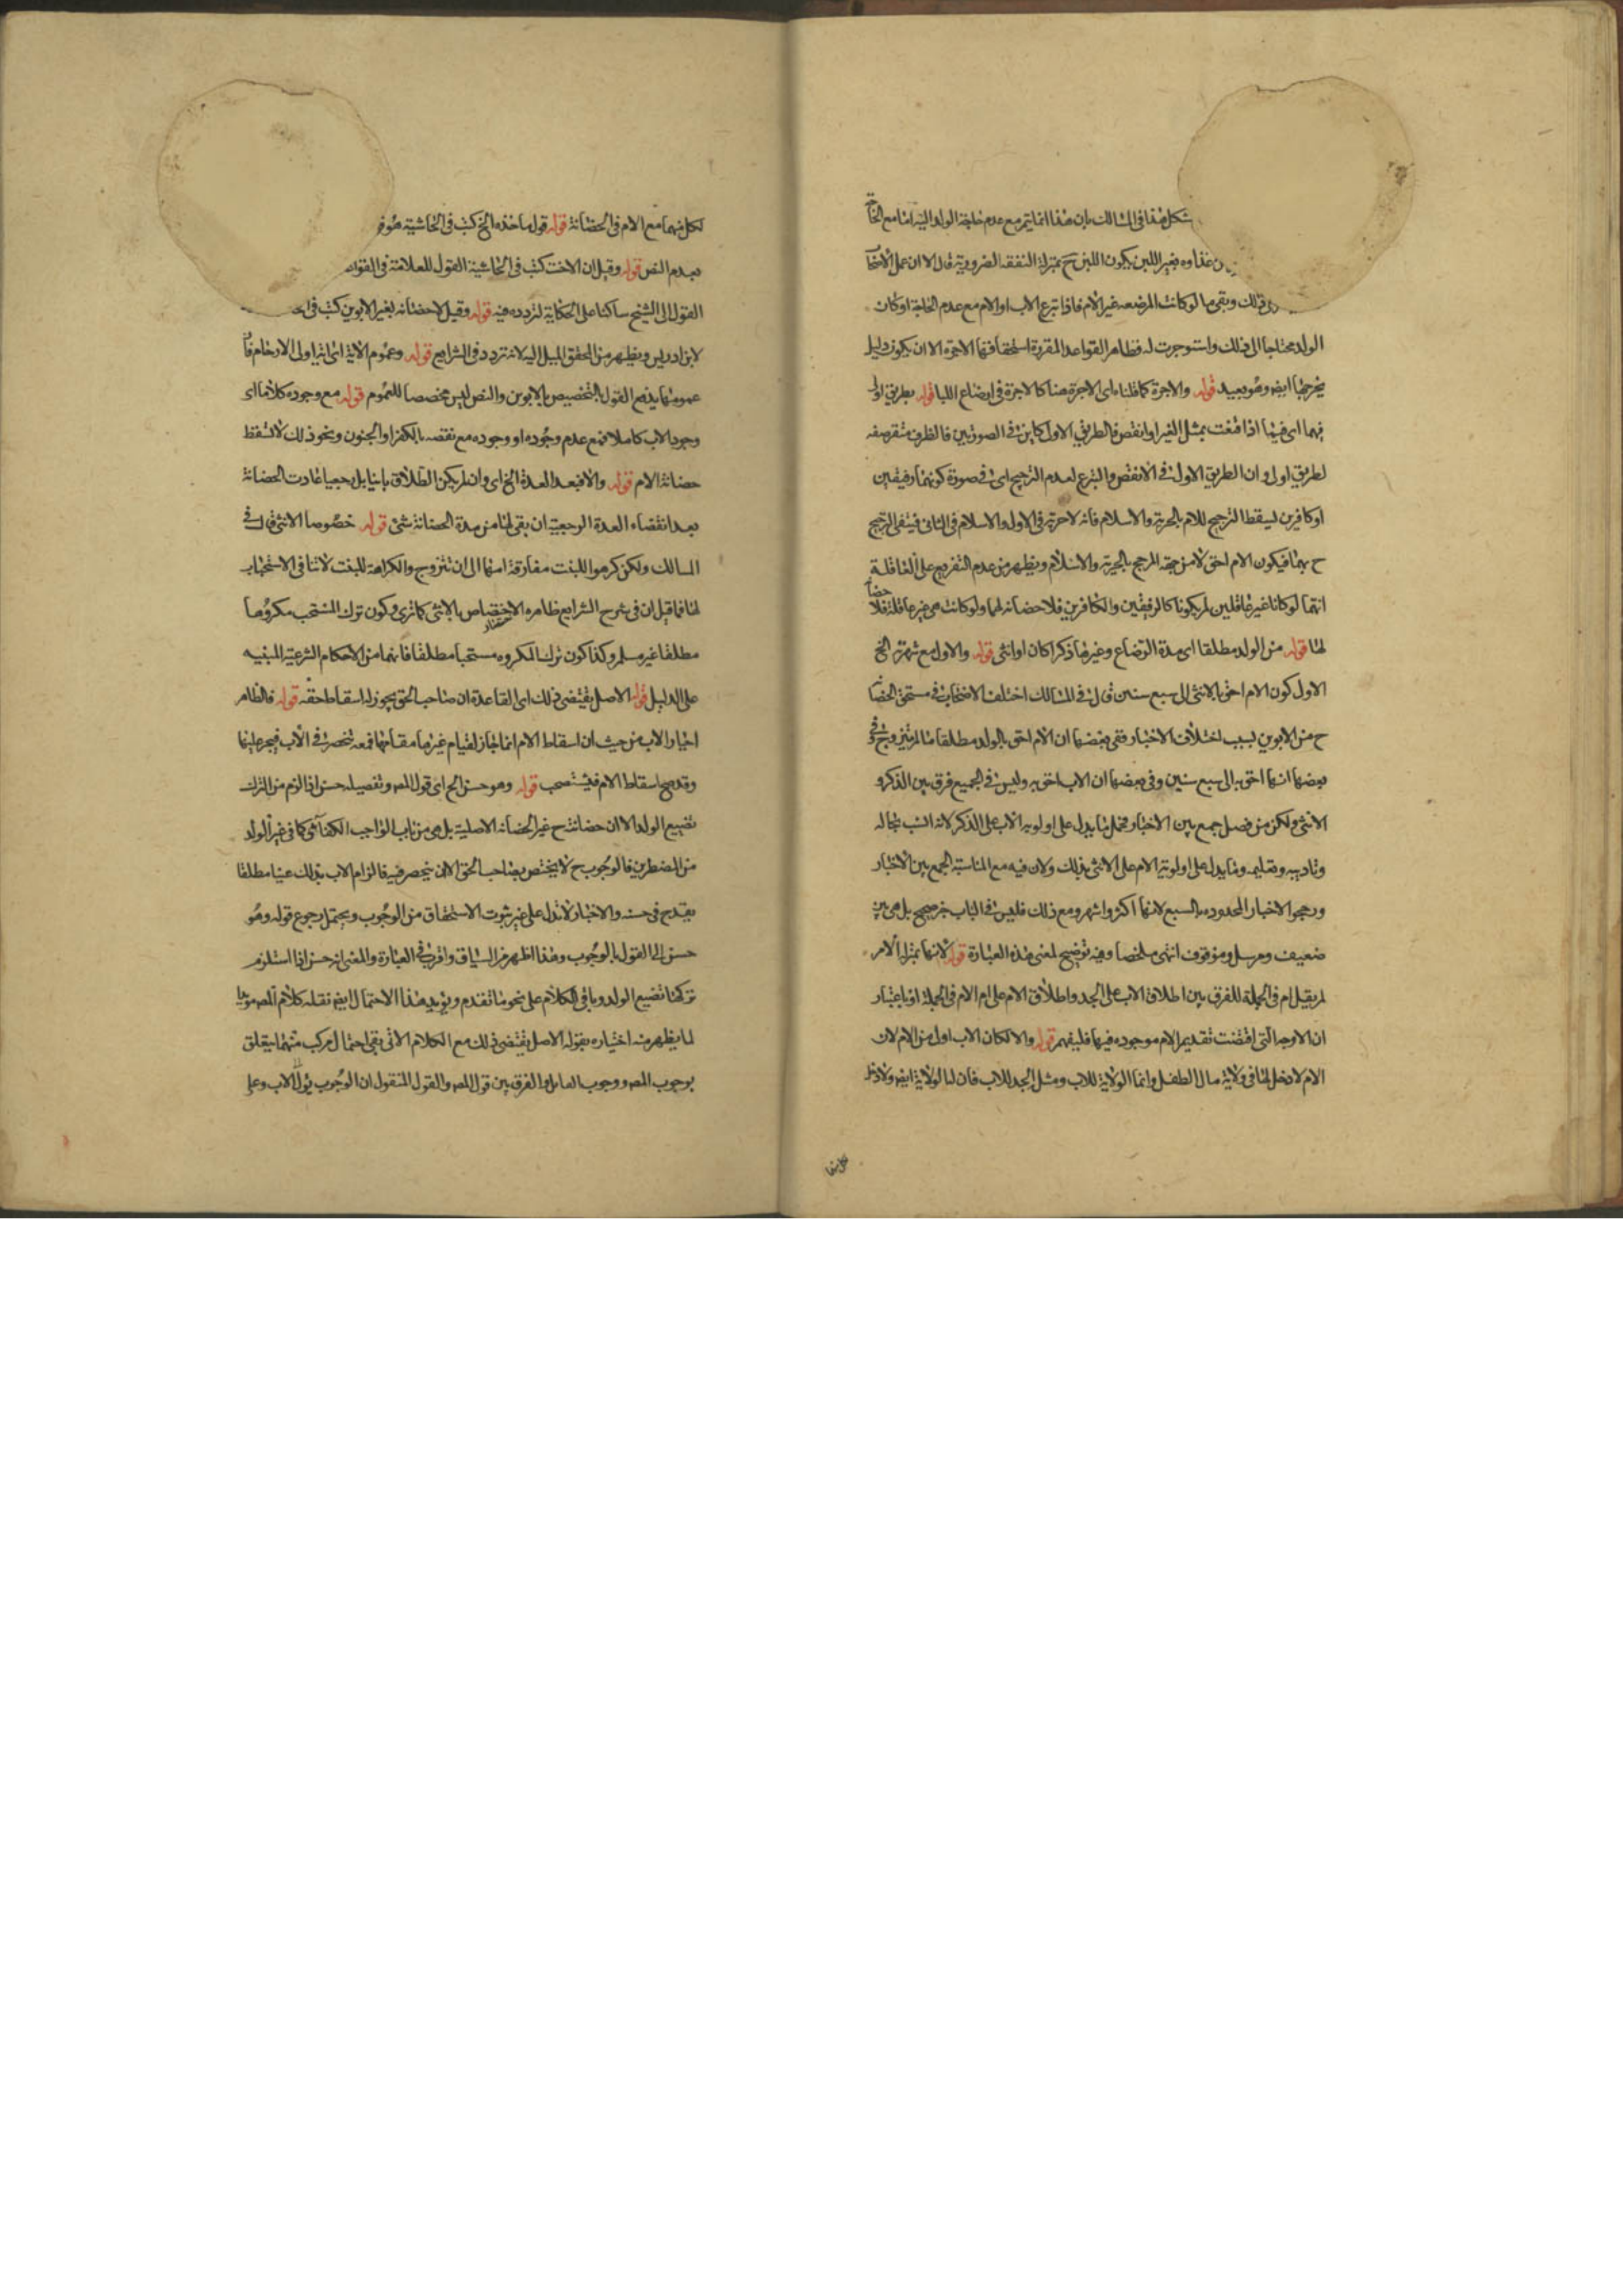 شكل هذا فى المسالك بان هذا انما يتم مع عدم حاجة الولد اليه اما مع الحاجة
غذاوه بغير اللبن يكون اللبن ح بمنزلة النفقه الضروريه قال الا ان عمل الاصحاب
ذلك وبقى ما لو كانت المرضعه غير الام فاذا تبرع الاب او الام مع عدم الحاجة او كان
الولد محتاجا الى ذلك واستوجرت له فظاهر القواعد المقررة استحقاقها الاجرة الا ان يكون دليل
يخرجها ايضا وهو بعيد قوله والاجرة كما قلناه اى الاجرة هنا كالاجرة فى ارضاع اللبا قوله بطريق اولى
فيهما اى فيما اذا قنعت بمثل الغير او انقص فالطريق الاول كاين فى الصورتين فالظرف مستقر صفه
لطريق اولى وان الطريق الاول فى الانقص والتبرع لعدم الترجيح اى فى صورة كونهما رقيقين
او كافرين ليسقط الترجيح للام بالحرية والاسلام فانه لا حرية فى الاول ولا اسلام فى الثانى فينتفى الترجيح
ح بهما فيكون الام احق لا من جهة المرجح بالحرية والاسلام ويظهر من عدم التفريع على العاقلة
انهما لو كانا غير عاقلين لم يكونا كالرقيقين والكافرين فلا حضانه لهما ولو كانت هى غير عاقلة فلا حضانة
لها قوله من الولد مطلقا اى مدة الرضاع وغيرها ذكرا كان او انثى قوله والاول مع شهرته الخ
الاول كون الام احق بالانثى الى سبع سنين قال فى المسالك اختلف الاصحاب فى مستحق الحضانة
ح من الابوين بسبب اختلاف الاخبار ففى بعضها ان الام احق بالولد مطلقا ما لم تتزوج وفى
بعضها انها احق به الى سبع سنين وفى بعضها ان الاب احق به وليس فى الجميع فرق بين الذكر و
الانثى ولكن من فصل جمع بين الاخبار فحمل ما يدل على اولويه الاب على الذكر لانه انسب بحاله
وتاديبه وتعليمه وما يدل على اولوية الام على الانثى بذلك ولان فيه مع المناسبة الجمع بين الاخبار
ورجحوا الاخبار المحدوده بالسبع لانها اكثر واشهر ومع ذلك فليس فى الباب خبر صحيح بل هى بين
ضعيف ومرسل وموقوف انتهى ملخصا وفيه توضيح لمعنى هذه العبارة قوله لانها بمنزلة الام
لم يقل ام فى الجملة للفرق بين اطلاق الاب على الجد واطلاق الام على ام الام فى الجملة او باعتبار
ان الاوجه التى اقتضت تقديم الام موجوده فيها فليفهم قوله والا لكان الاب اولى من الام لان
الام لا دخل لها فى ولاية مال الطفل وانما الولاية للاب ومثل الجد للاب فان لها لولاية ايضا ولا دخل
لكل منهما مع الام فى الحضانة قوله قول ماخذه الخ كتب فى الحاشية هو
بعدم النص قوله وقيل ان الاخت كتب فى الحاشية القول للعلامة فى القواعد
القول الى الشيخ ساكتا على الحكاية لتردده فيه قوله وقيل لا حضانه لغير الابوين كتب فى
لابن ادريس ويظهر من المحقق الميل اليه لانه تردد فى الشرايع قوله وعموم الاية اى اية اولى الارحام فان
عمومها يدفع القول بالتخصيص بالابوين والنص ليس مخصصا للعموم قوله مع وجوده كلا ما اى
وجود الاب كاملا فمع عدم وجوده او وجوده مع نقصه بالكفر او الجنون ونحو ذلك لا تسقط
حضانة الام قوله والا فبعد العدة الخ اى وان لم يكن الطلاق باينا بل رجعيا عادت الحضانة
بعد انقضاء العدة الرجعية ان بقى لها من مدة الحضانة شئ قوله خصوصا الانثى قال فى
المسالك ولكن كرهوا للبنت مفارقة امها الى ان تتزوج والكراهة للبنت لا تنافى الاستحباب
لها فما قيل ان فى شرح الشرايع ظاهره الاختصاص بالانثى كما ترى وكون ترك المستحب مكروها
مطلقا غير مسلم وكذا كون ترك المكروه مستحبا مطلقا فانهما من الاحكام الشرعية المبنيه
على الدليل قوله الاصل يقتضى ذلك اى القاعدة ان صاحب الحق يجوز له اسقاط حقه قوله فالظاهر
اجبار الاب من حيث ان اسقاط الام انما جاز لقيام غيرها مقامها فمعه تنحصر فى الاب فيجبر عليها
وقد صح اسقاط الام فيستصحب قوله وهو حسن الخ اى قول المص وتفصيله حسن اذا لزم من الترك
تضييع الولد الا ان حضانته ح غير الحضانه الاصلية بل هى من باب الواجب الكفائى كما فى غير الولد
من المضطرين فالوجوب ح لا يختص بصاحب الحق الا ان ينحصر فيه فالزام الاب بذلك عينا مطلقا
يقدح فى حسنه والاخبار لا تدل على غير ثبوت الاستحقاق من الوجوب ويحتمل رجوع قوله وهو
حسن الى القول بالوجوب وهذا اظهر من السياق واقرب فى العبارة والمعنى انه حسن اذا استلزم
تركها تضييع الولد وباقى الكلام على نحو ما تقدم ويؤيد هذا الاحتمال ايضا نقله كلام المص
لما يظهر منه اختياره بقوله الاصل يقتضى ذلك مع الكلام الاتى بقى احتمال مركب منهما يتعلق
بوجوب المص ووجوب القايل والفرق بين قول المص والقول المنقول ان الوجوب يؤل للاب وعلى